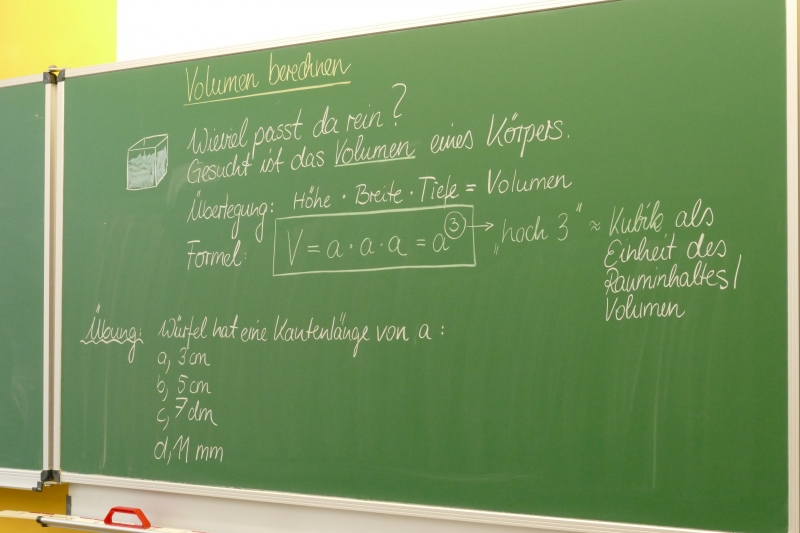 Volumen berechnen
Wieviel passt da rein?
Gesucht ist das Volumen eines Körpers.
Überlegung: Höhe · Breite · Tiefe = Volumen
Formel: V = a · a · a = a³ → „hoch 3" ≈ Kubik als
Einheit des
Rauminhaltes/
Volumen
Übung: Würfel hat eine Kantenlänge von a:
a, 3 cm
b, 5 cm
c, 7 dm
d, 11 mm